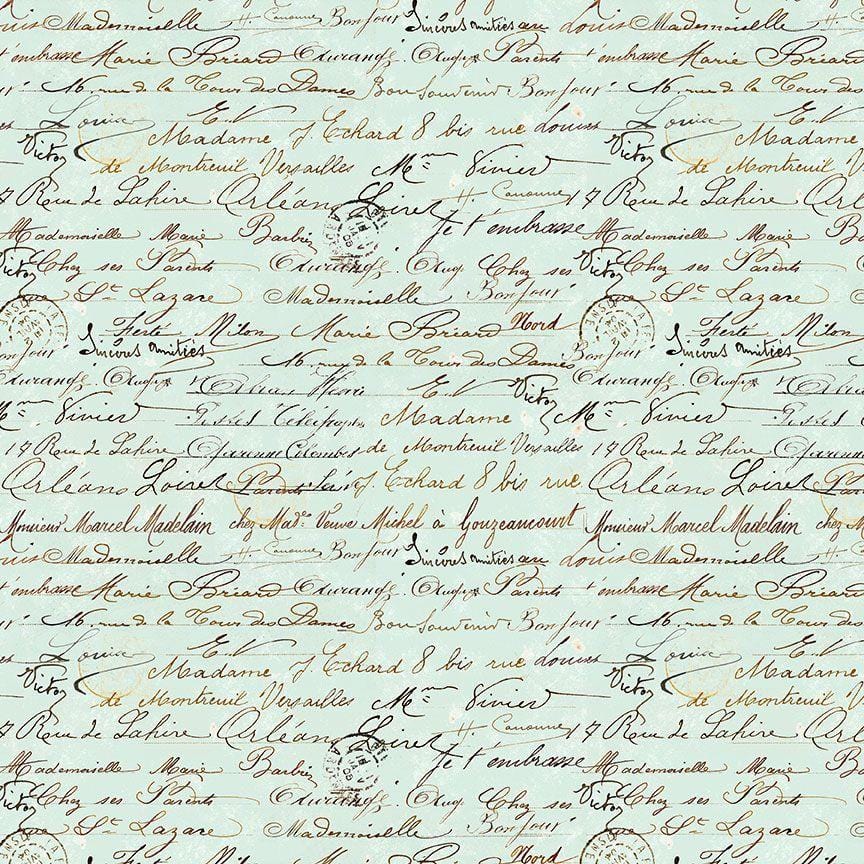 Louis Mademoiselle H. Canonne Bonjour Sincères amitiés au Louis Mademoiselle H. Canonne Bonjour
t'embrasse Marie Briard Parents t'embrasse Marie Briard
16, rue de la Tour des Dames Bon Souvenir Bonjour 16, rue de la Tour des
Louise E.V Louise E.V
Victor Madame J. Echard 8 bis rue Louise Victor Madame
de Montreuil Versailles Mme Vivier de Montreuil Versailles
17 Rue de Lahire Orléans Loiret H. Canonne 17 Rue de Lahire
Je t'embrasse
Mademoiselle Marie Barbier Mademoiselle Marie
Victor Chez ses Parents Chez ses Victor Chez ses Parents
rue St Lazare Mademoiselle Bonjour rue St Lazare
Ferté Milon Marie Briard Nord Ferté Milon
Bonjour Sincères amitiés 16, rue de la Tour des Dames Bonjour Sincères amitiés
E.V Victor
Mme Vivier Postes Télégraphes Madame Mme Vivier Postes
17 Rue de Lahire Garenne Colombes de Montreuil Versailles 17 Rue de Lahire Garenne
Orléans Loiret Parents J. Echard 8 bis rue Orléans Loiret
Monsieur Marcel Madelain chez Made Veuve Michel à Gouzeaucourt Monsieur Marcel Madelain chez
Louis Mademoiselle H. Canonne Bonjour Sincères amitiés au Louis Mademoiselle H. Canonne Bonjour
t'embrasse Marie Briard Parents t'embrasse Marie Briard
16, rue de la Tour des Dames Bon Souvenir Bonjour 16, rue de la Tour des
Louise E.V Louise E.V
Victor Madame J. Echard 8 bis rue Louise Victor Madame
de Montreuil Versailles Mme Vivier de Montreuil Versailles
17 Rue de Lahire Orléans Loiret H. Canonne 17 Rue de Lahire
Je t'embrasse
Mademoiselle Marie Barbier Mademoiselle Marie
Victor Chez ses Parents Chez ses Victor Chez ses Parents
rue St Lazare Mademoiselle Bonjour rue St Lazare
Ferté Milon Marie Briard Nord Ferté Milon